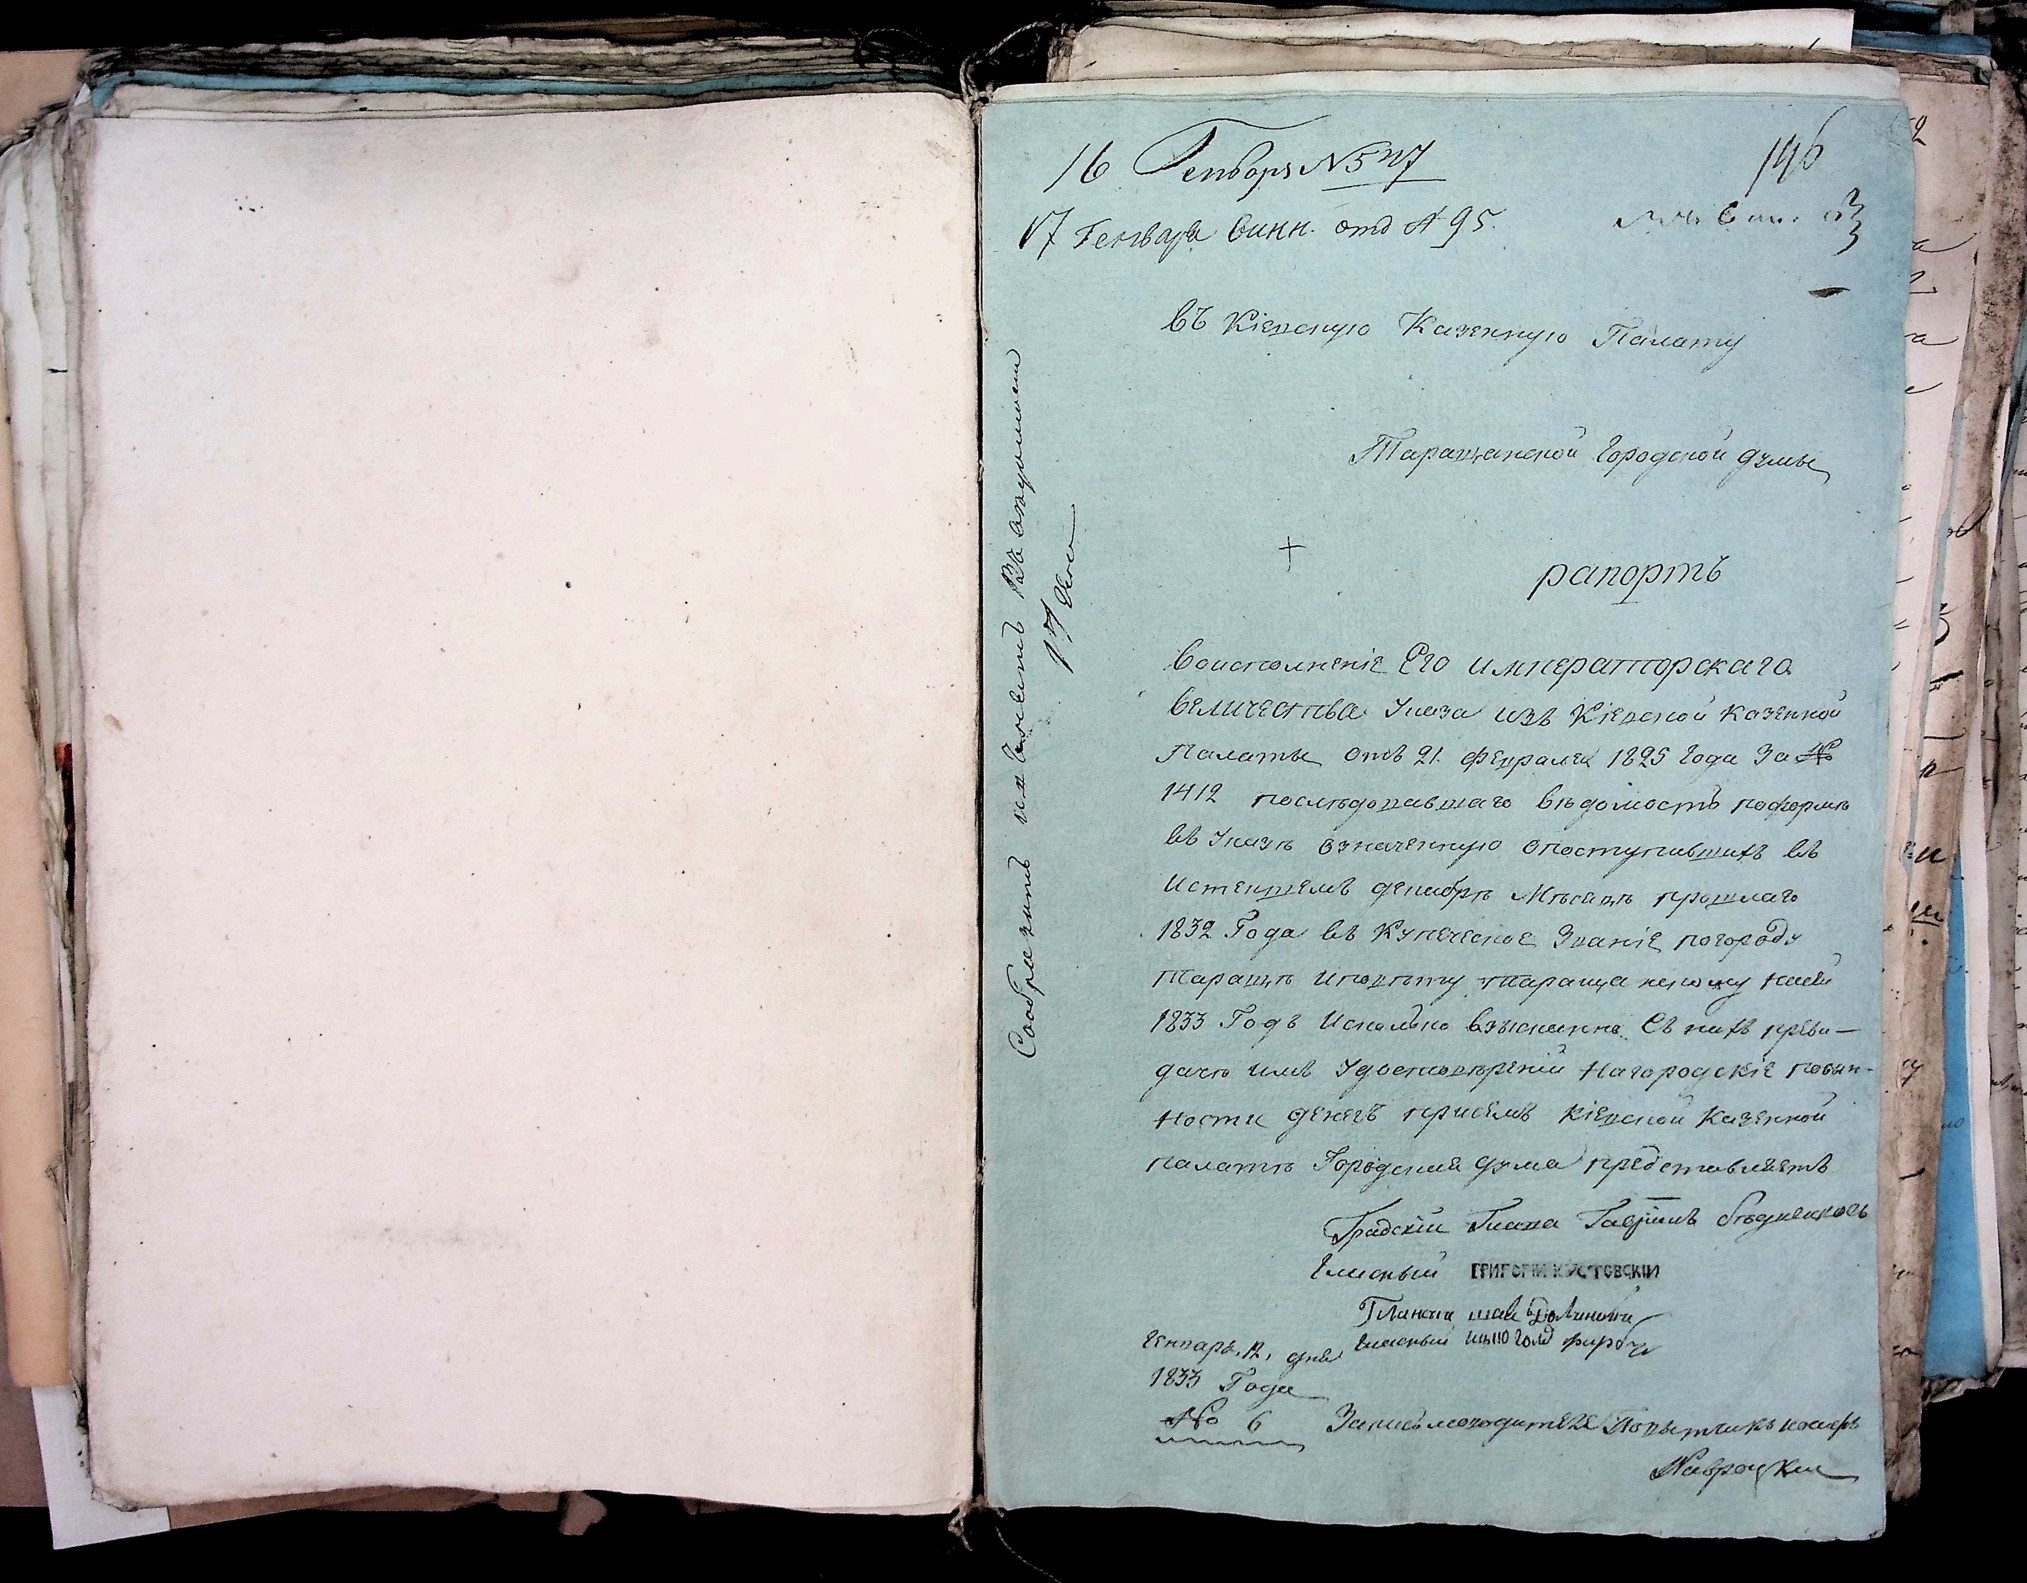 16 Генваря N 527
146
17 Генваря винн. отд N 95.
Въ Кіевскую Казенную Палату
Таращанской Городской думы
рапортъ
Воисполненіе Его императорскаго
величества Указа изъ Кіевской Казенной
Палаты отъ 21. февраля 1825 года За №
1412 последовавшаго ведомость поформе
въ Указе означенную опоступившихъ въ
Истекшемъ декабре Месяце прошлаго
1832 Года въ Купеческое Званіе погороду
Тараще иповету таращанскому насей
1833 Годъ Исколько взысканно съ нихъ превы-
дачи имъ Удостоверений Нагородскіе повын-
ности денегъ присемъ Кіевской Казенной
палате Городская дума представляетъ
Градскій Глава Гаврілъ
Гласный ГРИГОРІЙ КУСТОВСКІЙ
Гласный
Генваря, 12, дня
1833 Года
№ 6
Записьмоводителя Повытчикъ
Навроцкій
Сообразить и въ ведомости
17 Генв